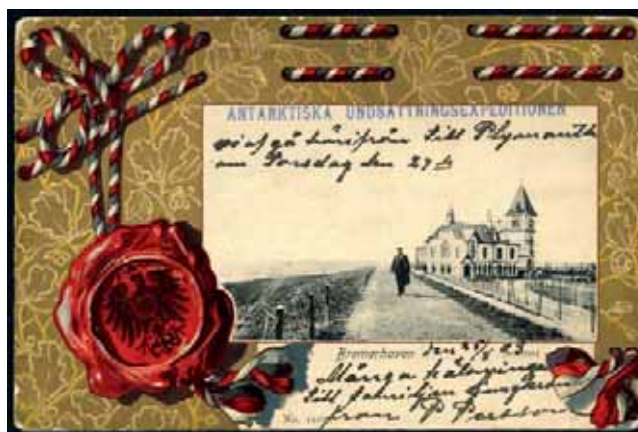 ANTARKTISKA UNDSÄTTNINGSEXPEDITIONEN
vi af gå härifrån till Plymouth
om Torsdag den 27
Bremerhaven den 25/8 03
Många hälsningar
till familjen
från P Persson
No.